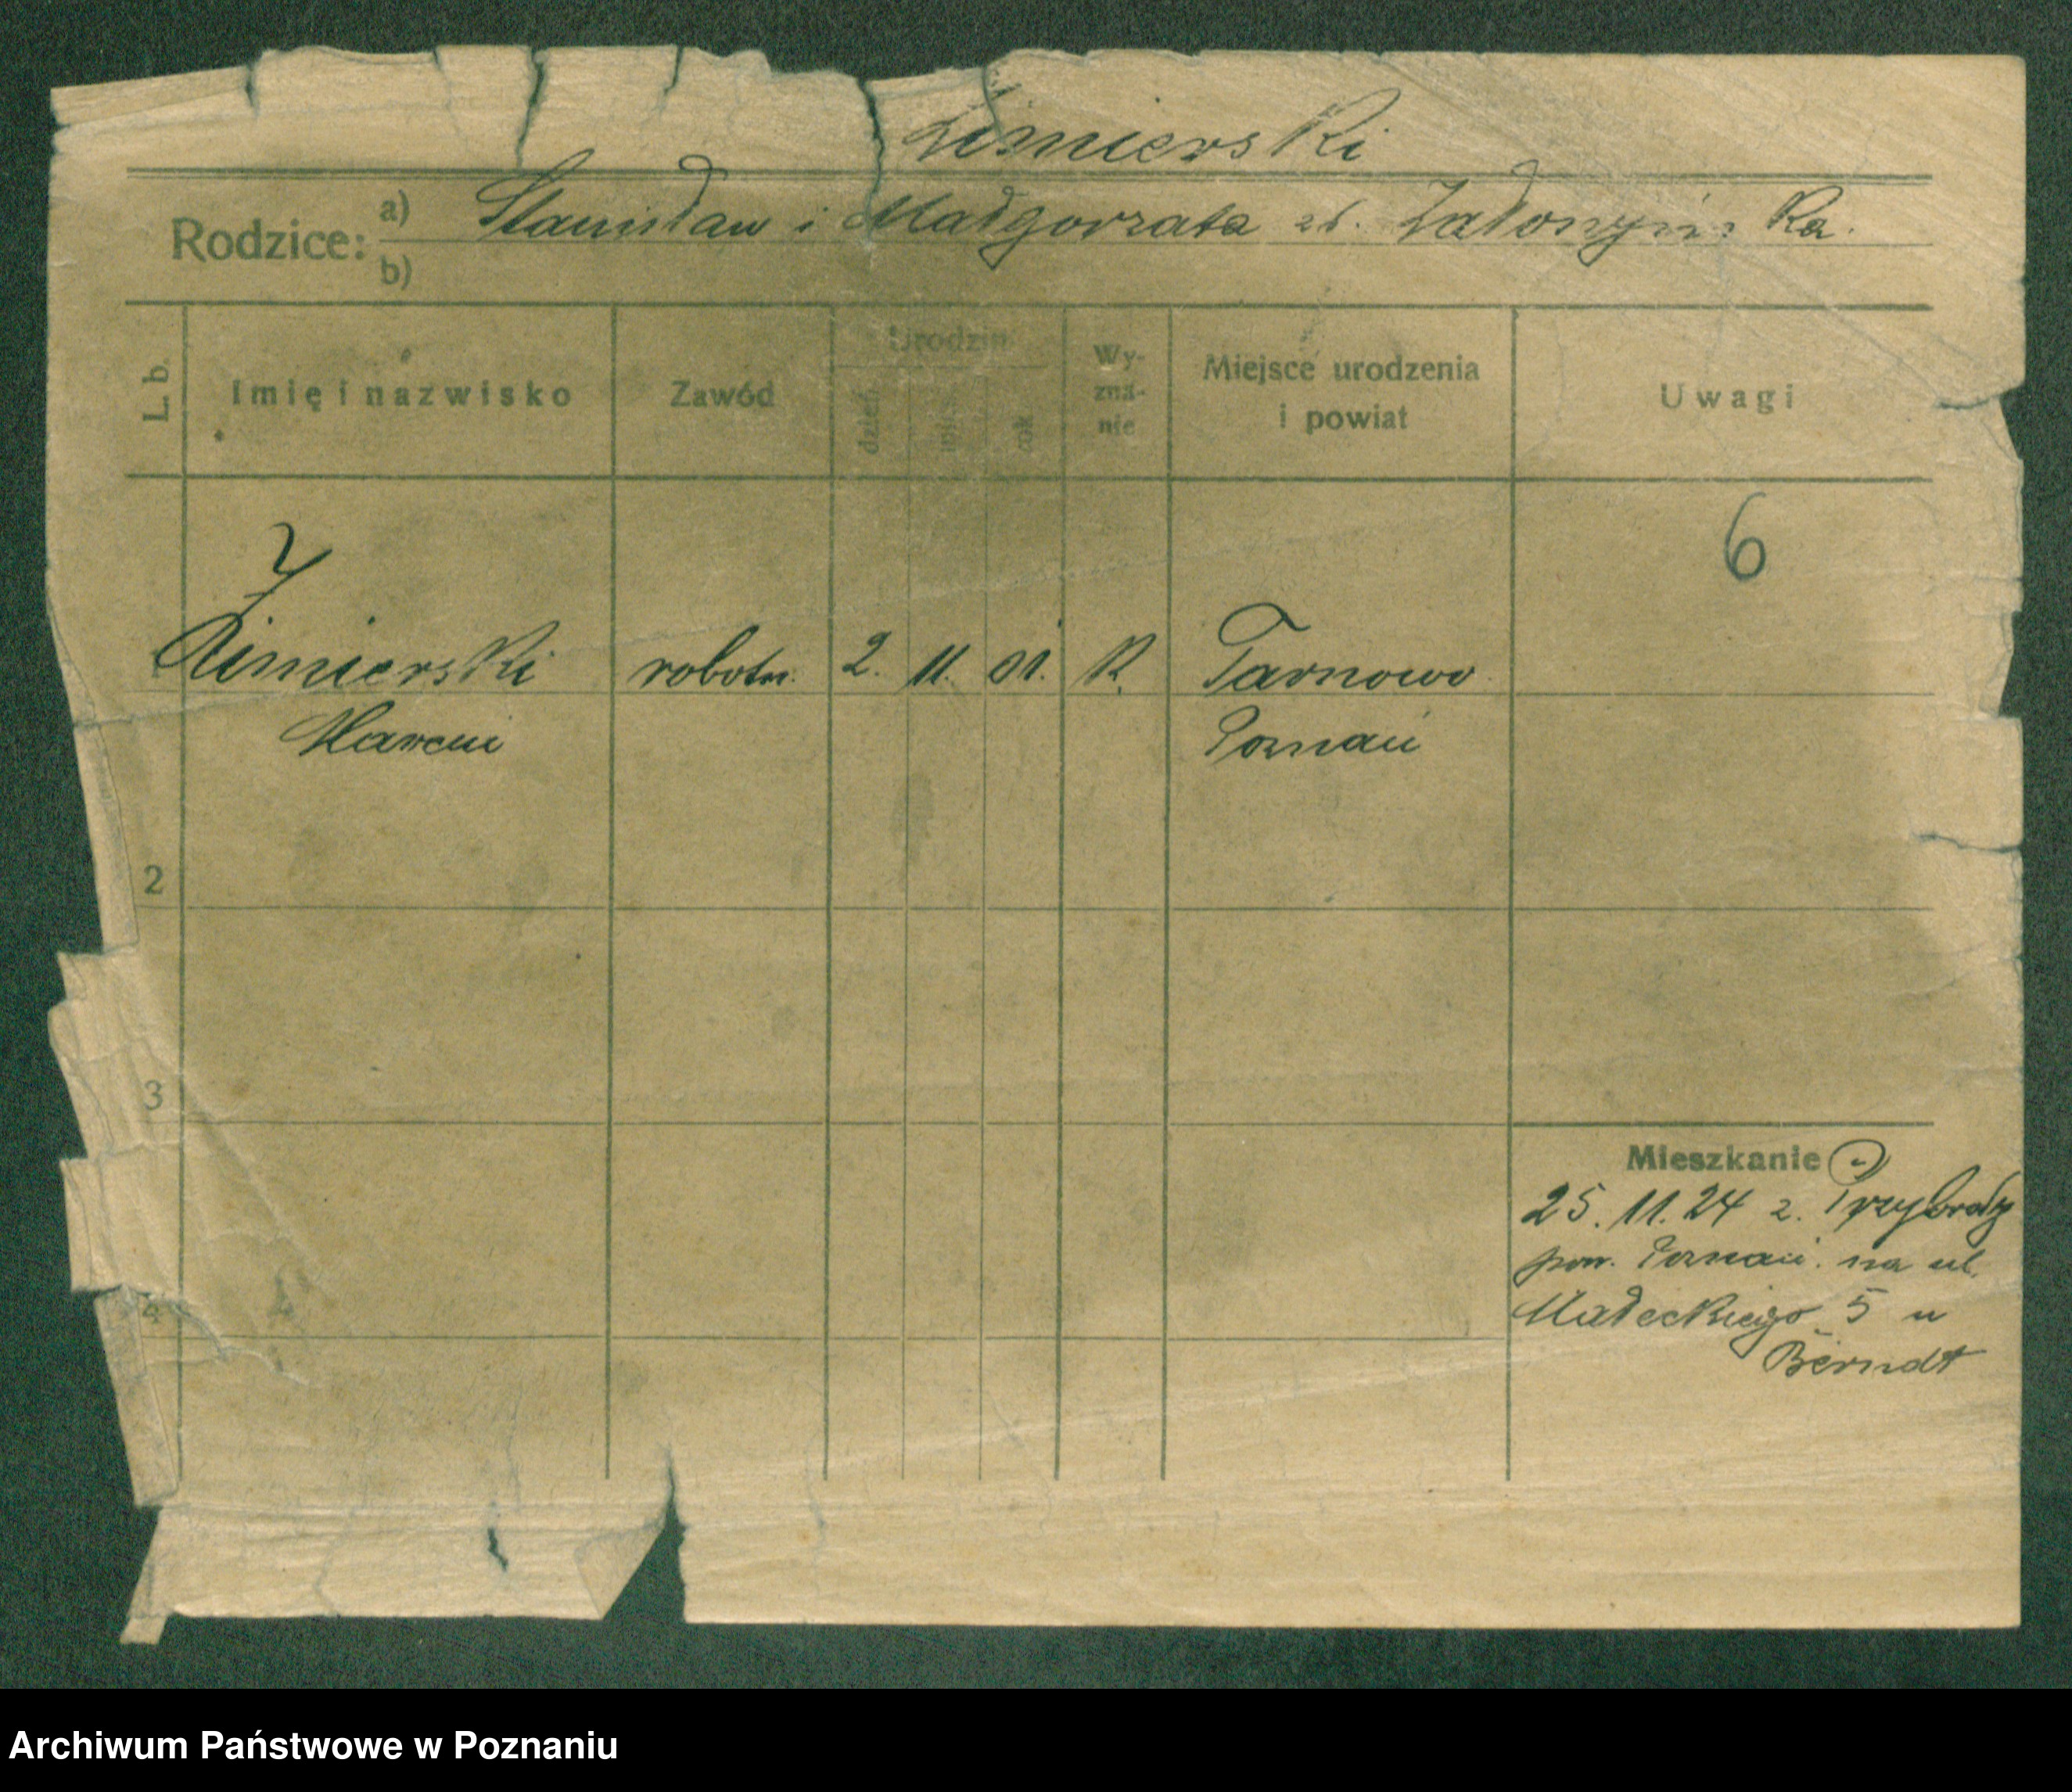 Zimierski
Rodzice: a) Stanisław i Małgorzata zd.
b)
L. b. Imię i nazwisko Zawód Urodzin dzień mies. rok Wy-zna-nie Miejsce urodzenia i powiat Uwagi
6
Z
1 Zimierski robotn. 2. 11. 01. K. Tarnowo
Marcin Poznań
2
3
Mieszkanie
25. 11. 24 z. Przybrody
pow. Poznań. na ul.
Małeckiego 5 u
Berndt
4
Archiwum Państwowe w Poznaniu